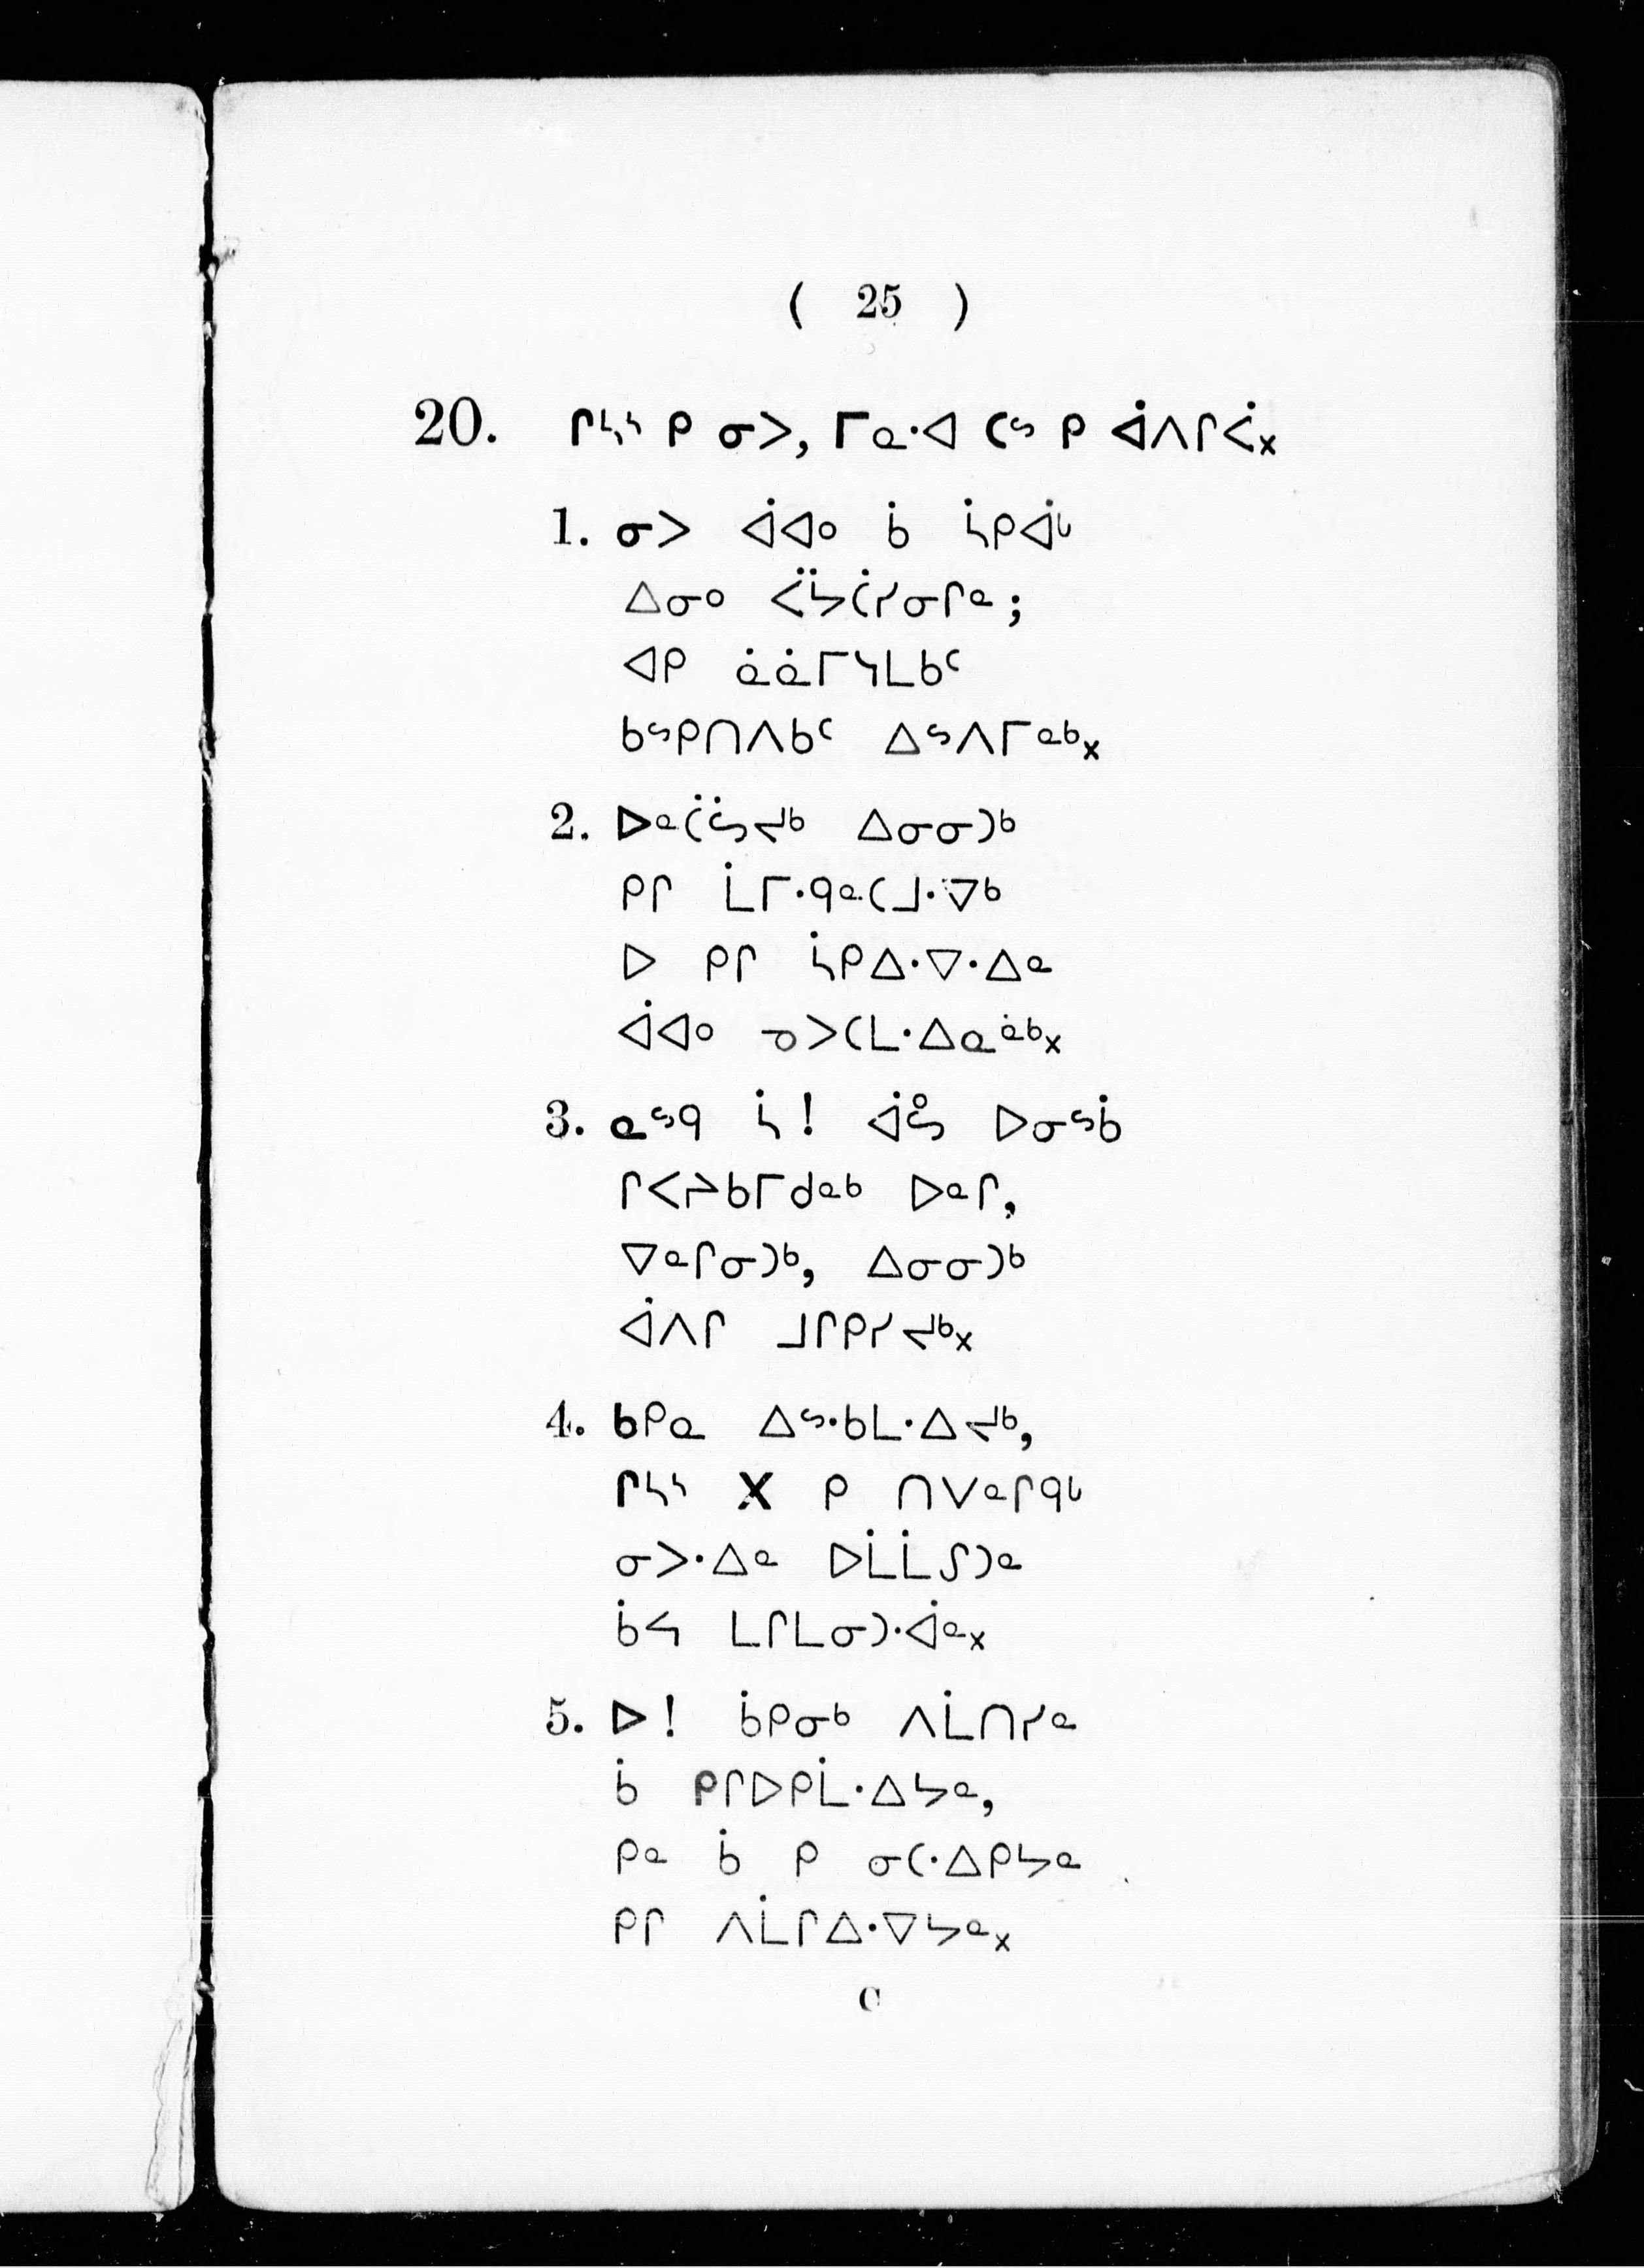 ( 25 )
20. ᒋᓴᔅ ᑭ ᓂᐳ, ᒥᓇᐧᐊ ᑕᔥ ᑭ ᐋᐱᒋᐹ᙮
1. ᓂᐳ ᐋᐊᐤ ᑳ ᓵᑭᐋᒡ
ᐃᓂᐤ ᐹᔮᑖᓯᓂᒋᓐ ;
ᐊᑭ ᓈᓈᒥᓭᒪᑲᑦ
ᑲᔥᑭᑎᐱᑲᑦ ᐃᔥᐱᒥᓐᒃ᙮
2. ᐅᓐᑖᔖᔪᒃ ᐃᓂᓂᑐᒃ
ᑭᒋ ᒫᒥᐧᑫᓐᑕᒧᐧᐁᒃ
ᐅ ᑭᒋ ᓵᑭᐃᐧᐁᐧᐃᓐ
ᐋᐊᐤ ᓄᐳᑕᒪᐧᐃᓇᓈᒃ᙮
3. ᓇᔥᑫ ᓵ! ᐋᔖ ᐅᓂᔥᑳ
ᒋᐸᔨᑲᒥᑯᓐᒃ ᐅᓐᒋ,
ᐁᓐᒋᓂᑐᒃ, ᐃᓂᓂᑐᒃ
ᐋᐱᒋ ᒧᒋᑭᓯᔪᒃ᙮
4. ᑲᑭᓇ ᐃᔥᐧᑲᒪᐧᐃᔪᒃ,
ᒋᓴᔅ ᙭ ᑭ ᑎᐯᓐᒋᑫᒡ
ᓂᐳᐧᐃᓐ ᐅᒫᒫᔑᑐᓐ
ᑳᔭ ᒪᒋᒪᓂᑐᐧᐋᓐ᙮
5. ᐅ! ᑳᑭᓂᒃ ᐱᒫᑎᓯᓐ
ᑳ ᑭᒋᐅᑭᒫᐧᐃᔭᓐ,
ᑭᓐ ᑳ ᑭ ᓂᑕᐧᐃᑭᔭᓐ
ᑭᒋ ᐱᒫᒋᐃᐧᐁᔭᓐ᙮
C